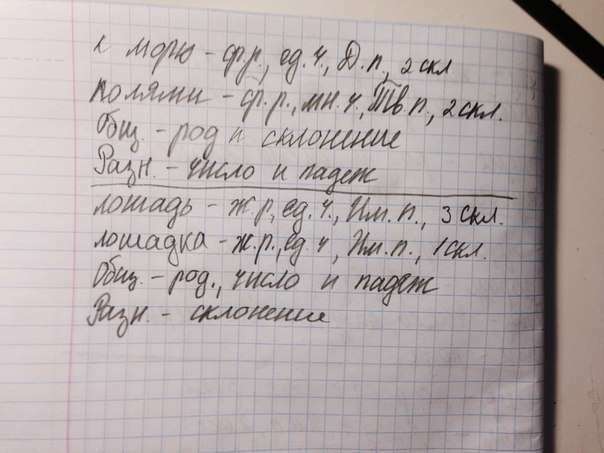 к морю - ср.р., ед.ч., Д.п., 2 скл
полями - ср.р., мн.ч., Тв.п., 2 скл.
Общ. - род и склонение
Разн. - число и падеж
лошадь - ж.р, ед.ч., Им.п., 3 скл.
лошадка - ж.р., ед ч, Им.п., 1 скл.
Общ. - род., число и падеж
Разн. - склонение